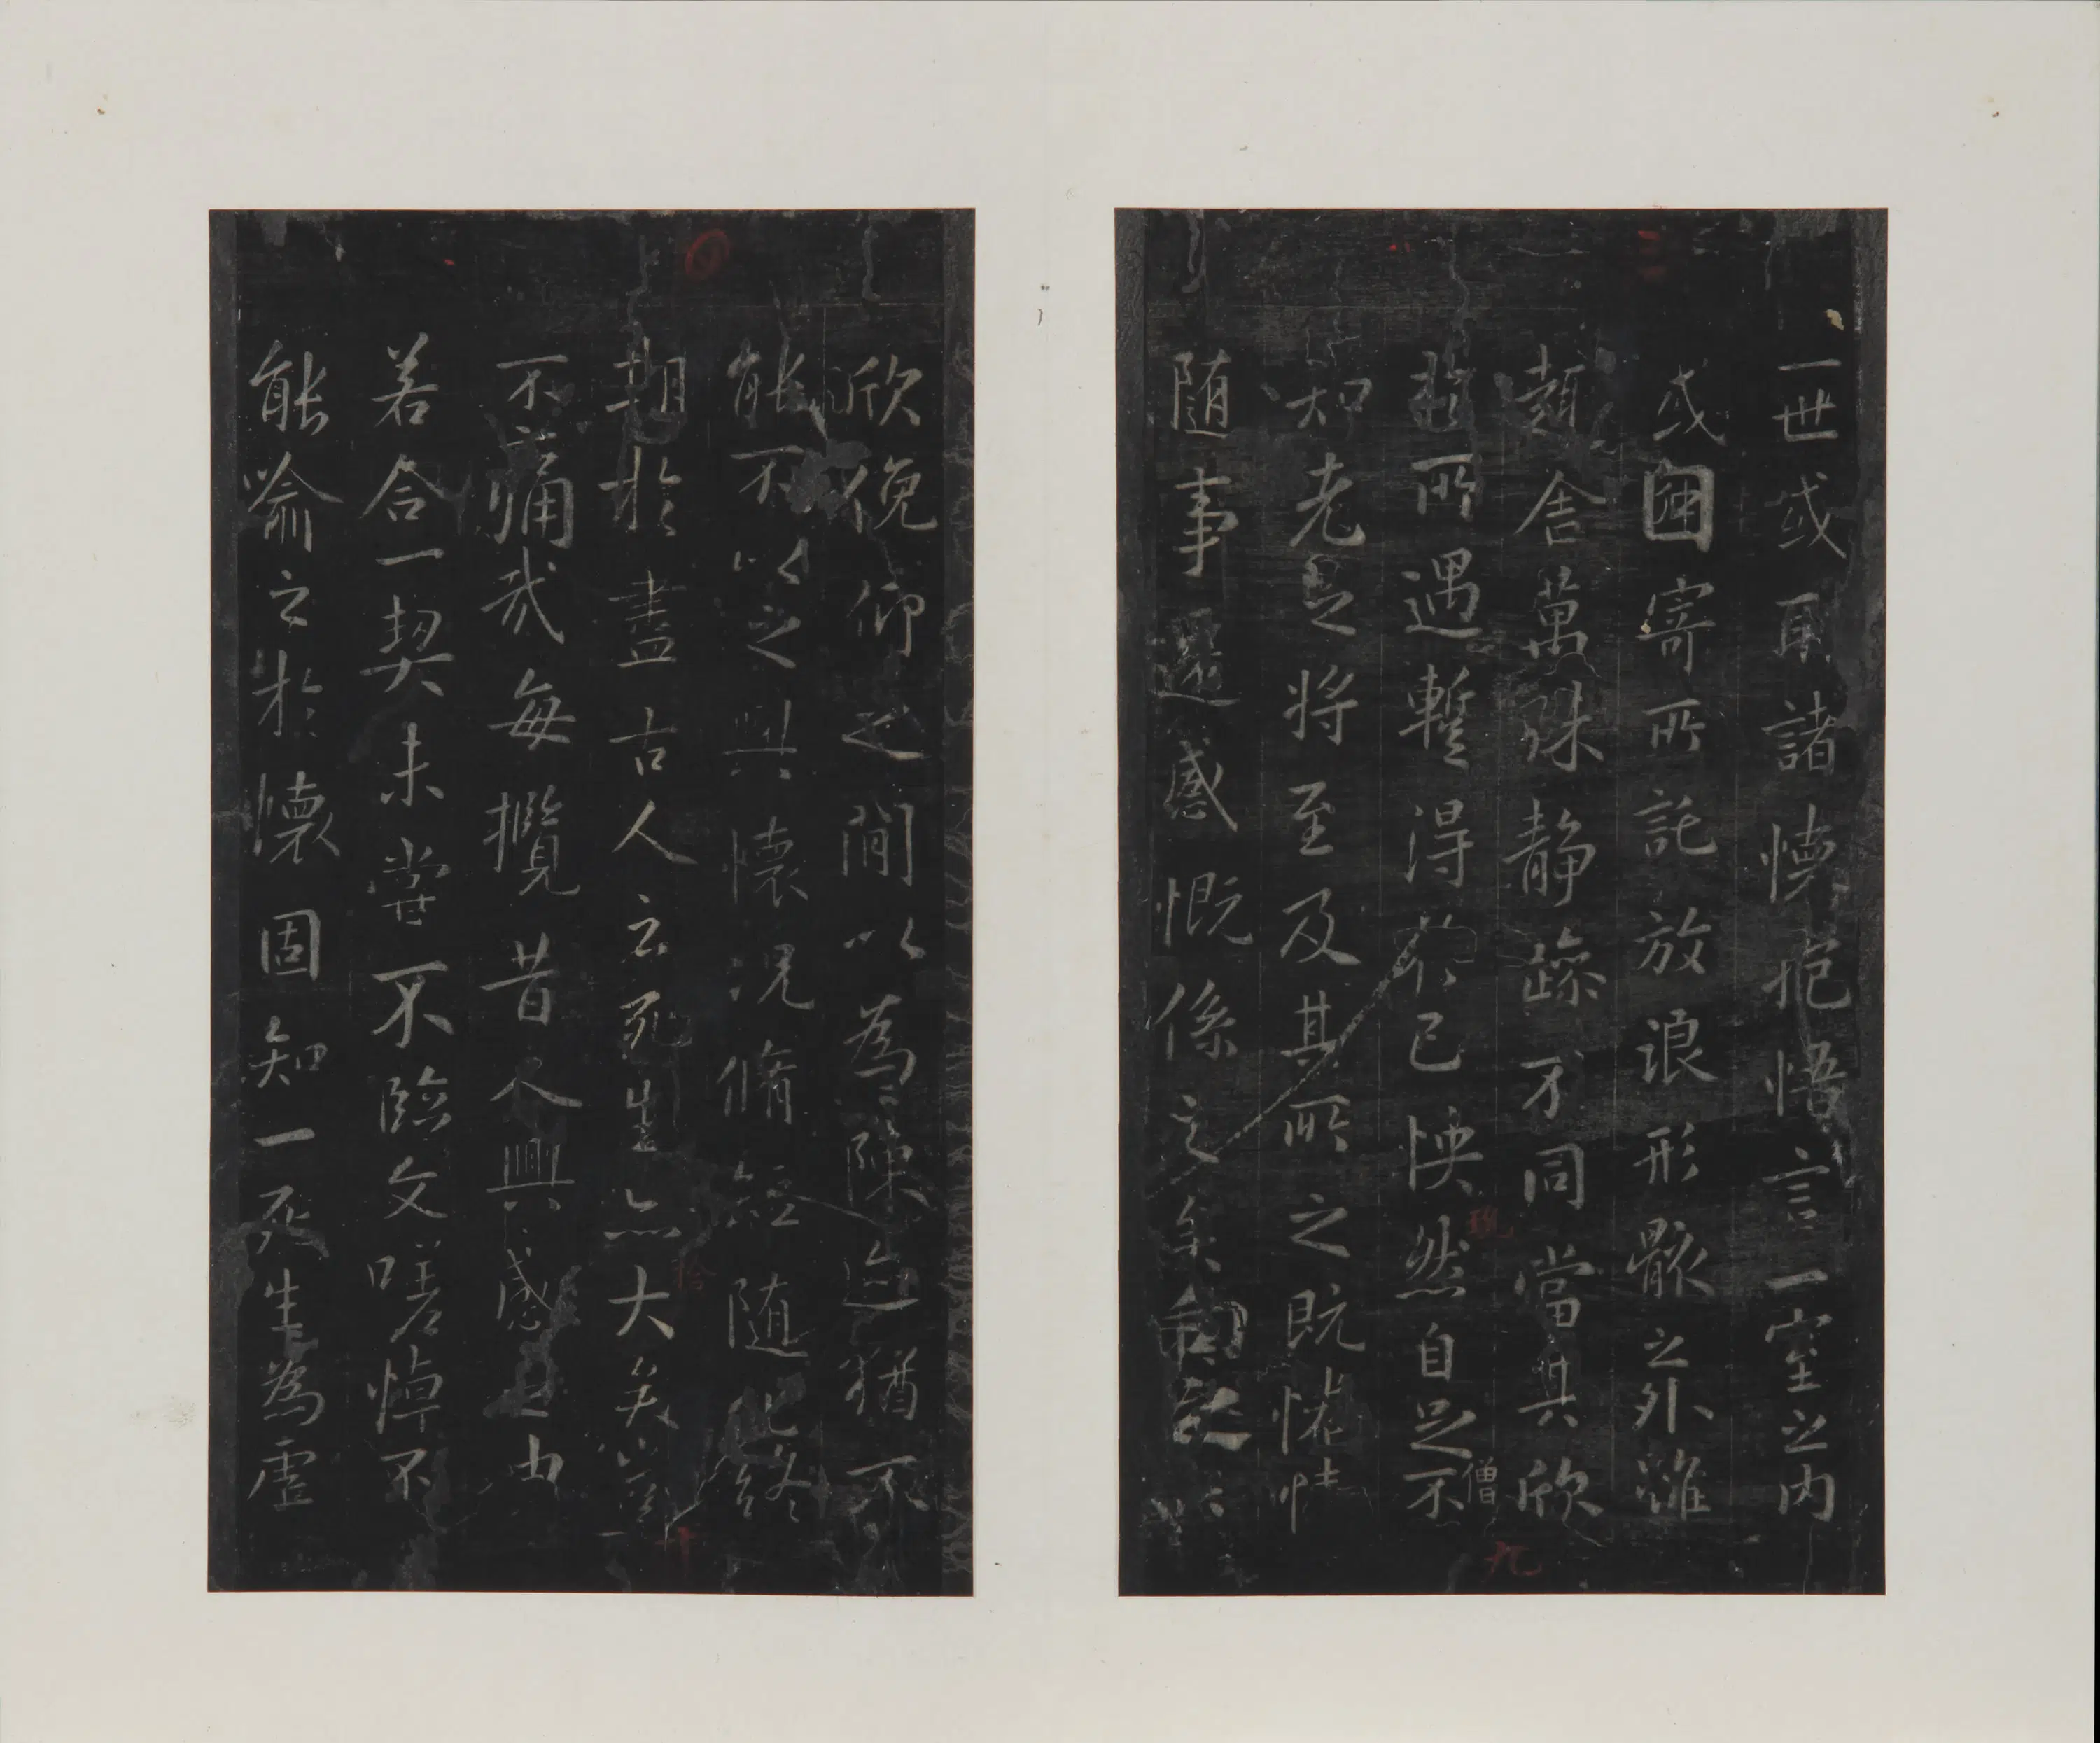 一世或取諸懷抱悟言一室之内
或因寄所託放浪形骸之外雖
趣舍萬殊静躁不同當其欣
僧
於所遇蹔得於己怏然自足不
知老之將至及其所之既惓情
随事遷感慨係之矣向之
九
欣俛仰之間以為陳迹猶不
能不以之興懷況脩短随化終
期於盡古人云死生亦大矣豈
不痛哉每攬昔人興感之由
若合一契未嘗不臨文嗟悼不
能喻之於懷固知一死生為虛
十